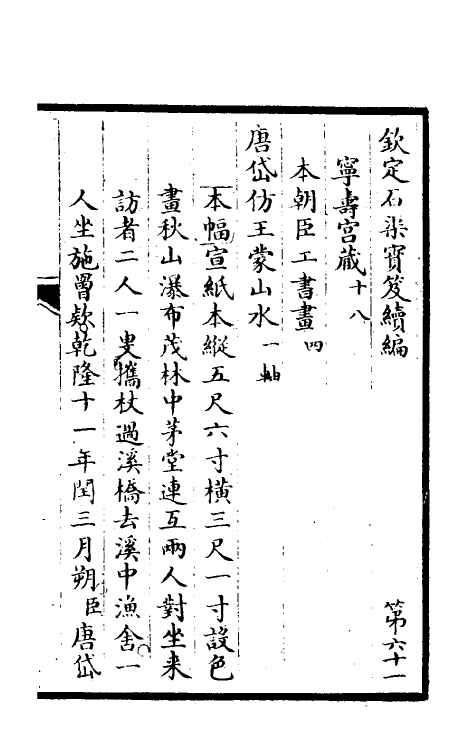 欽定石渠寶笈續編 第六十一
寧壽宮藏十八
本朝臣工書畫四
唐岱仿王蒙山水一軸
本幅宣紙本縱五尺六寸橫三尺一寸設色
畫秋山瀑布茂林中茅堂連互兩人對坐来
訪者二人一叟攜杖過溪橋去溪中漁舍一
人坐施罾欵乾隆十一年閏三月朔臣唐岱